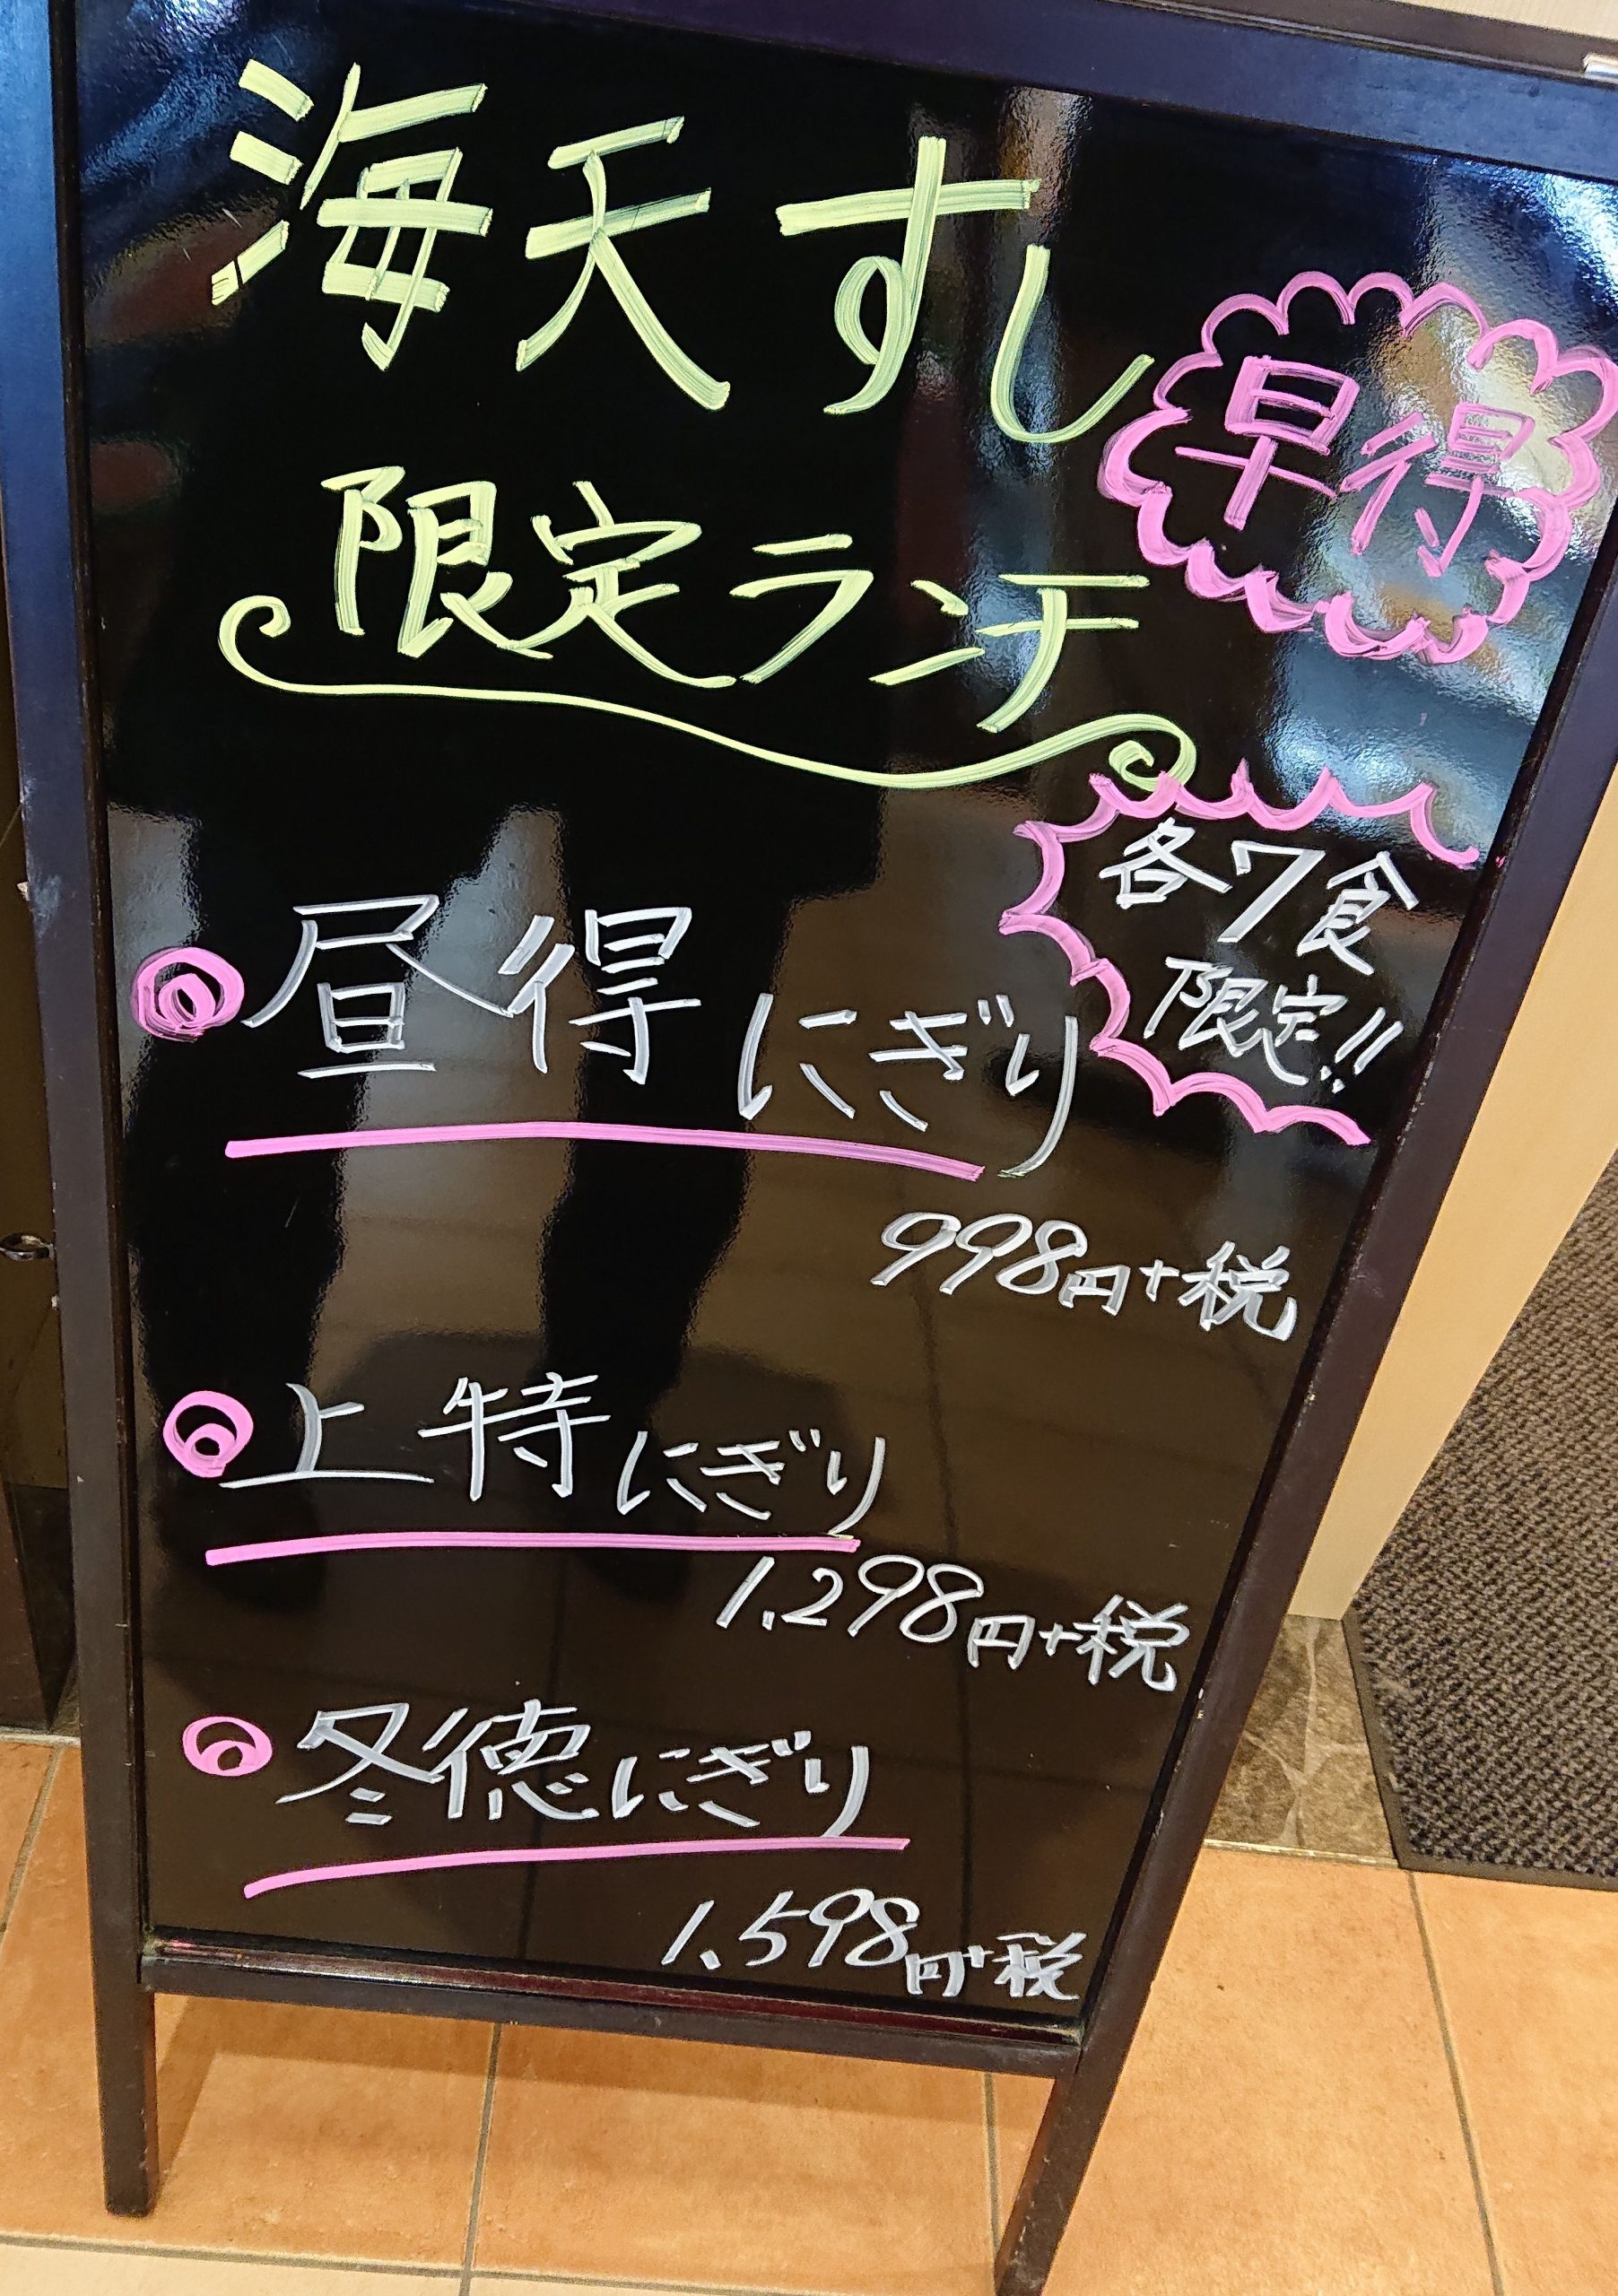 海天すし
早得
限定ランチ
各7食
限定!!
昼得にぎり
998円+税
上特にぎり
1.298円+税
冬徳にぎり
1.598円+税